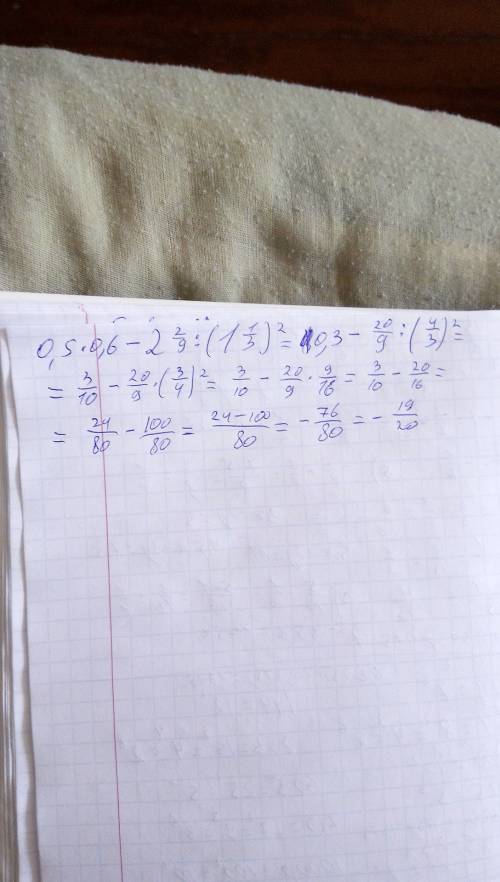 0,5·0,6 - 2 2/9 : (1 1/3)² = 0,3 - 20/9 : (4/3)² =
= 3/10 - 20/9 · (3/4)² = 3/10 - 20/9 · 9/16 = 3/10 - 20/16 =
= 24/80 - 100/80 = (24-100)/80 = - 76/80 = - 19/20